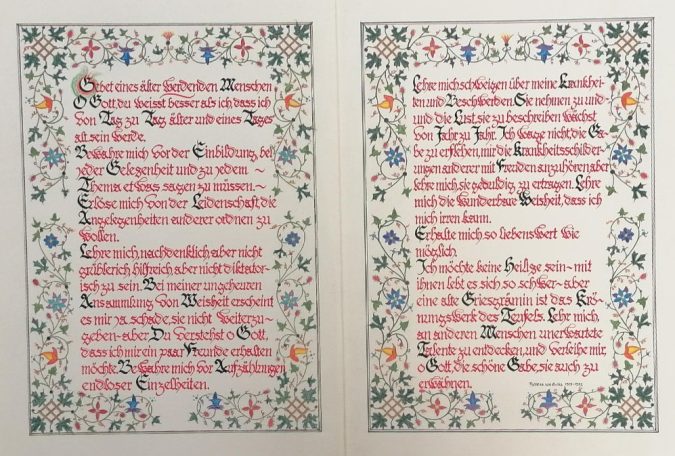 Gebet eines älter werdenden Menschen
O Gott, du weisst besser als ich, dass ich
von Tag zu Tag älter und eines Tages
alt sein werde.
Bewahre mich vor der Einbildung, bei
jeder Gelegenheit und zu jedem ~
Thema etwas sagen zu müssen. ~
Erlöse mich von der Leidenschaft, die
Angelegenheiten anderer ordnen zu
wollen.
Lehre mich, nachdenklich, aber nicht
grüblerisch, hilfreich, aber nicht diktator-
isch zu sein. Bei meiner ungeheuren
Ansammlung von Weisheit erscheint
es mir ja schade, sie nicht weiterzu-
geben - aber Du verstehst o Gott,
dass ich mir ein paar Freunde erhalten
möchte. Bewahre mich vor Aufzählungen
endloser Einzelheiten.
Lehre mich schweigen über meine Krankhei-
ten und Beschwerden. Sie nehmen zu und-
und die Lust, sie zu beschreiben wächst
von Jahr zu Jahr. Ich wage nicht, die Ga-
be zu erflehen, mir die Krankheitsschilder-
ungen anderer mit Freuden anzuhören, aber
lehre mich, sie geduldig zu ertragen. Lehre
mich die wunderbare Weisheit, dass ich
mich irren kann.
Erhalte mich so liebenswert wie
möglich.
Ich möchte keine Heilige sein - mit
ihnen lebt es sich so schwer - aber
eine alte Griesgrämin ist das Krö-
nungswerk des Teufels. Lehr mich,
an anderen Menschen unerwartete
Talente zu entdecken, und verleihe mir,
o Gott, die schöne Gabe, sie auch zu
erwähnen.